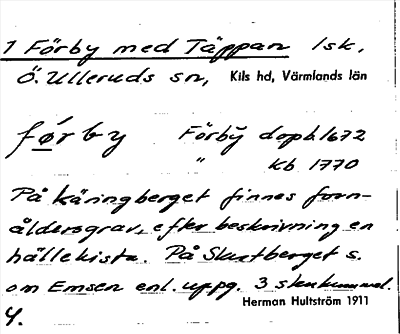 1 Förby med Täppan 1sk.
Ö. Ulleruds sn, Kils hd, Värmlands län
førby Förby dopb. 1672
" Kb 1770
På käringberget finnes forn-
åldersgrav, efter beskrivning en
hällekista. På Slustberget s.
om Emsen enl. uppg. 3 stenkummel.
Herman Hultström 1911
4.